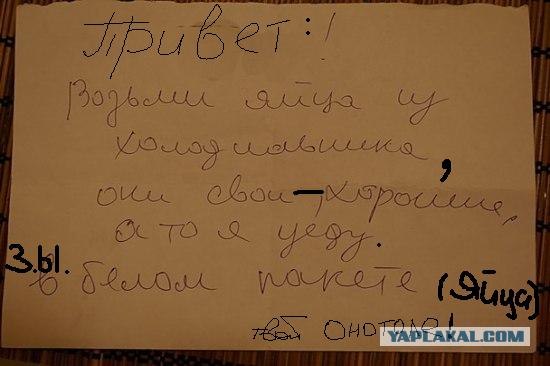 Привет:!
Возьми яйца из
холодильника,
они свои – хорошие,
а то я уеду.
З.Ы.
в белом пакете (Яйца)
твой Онотоле!
YAPLAKAL.COM